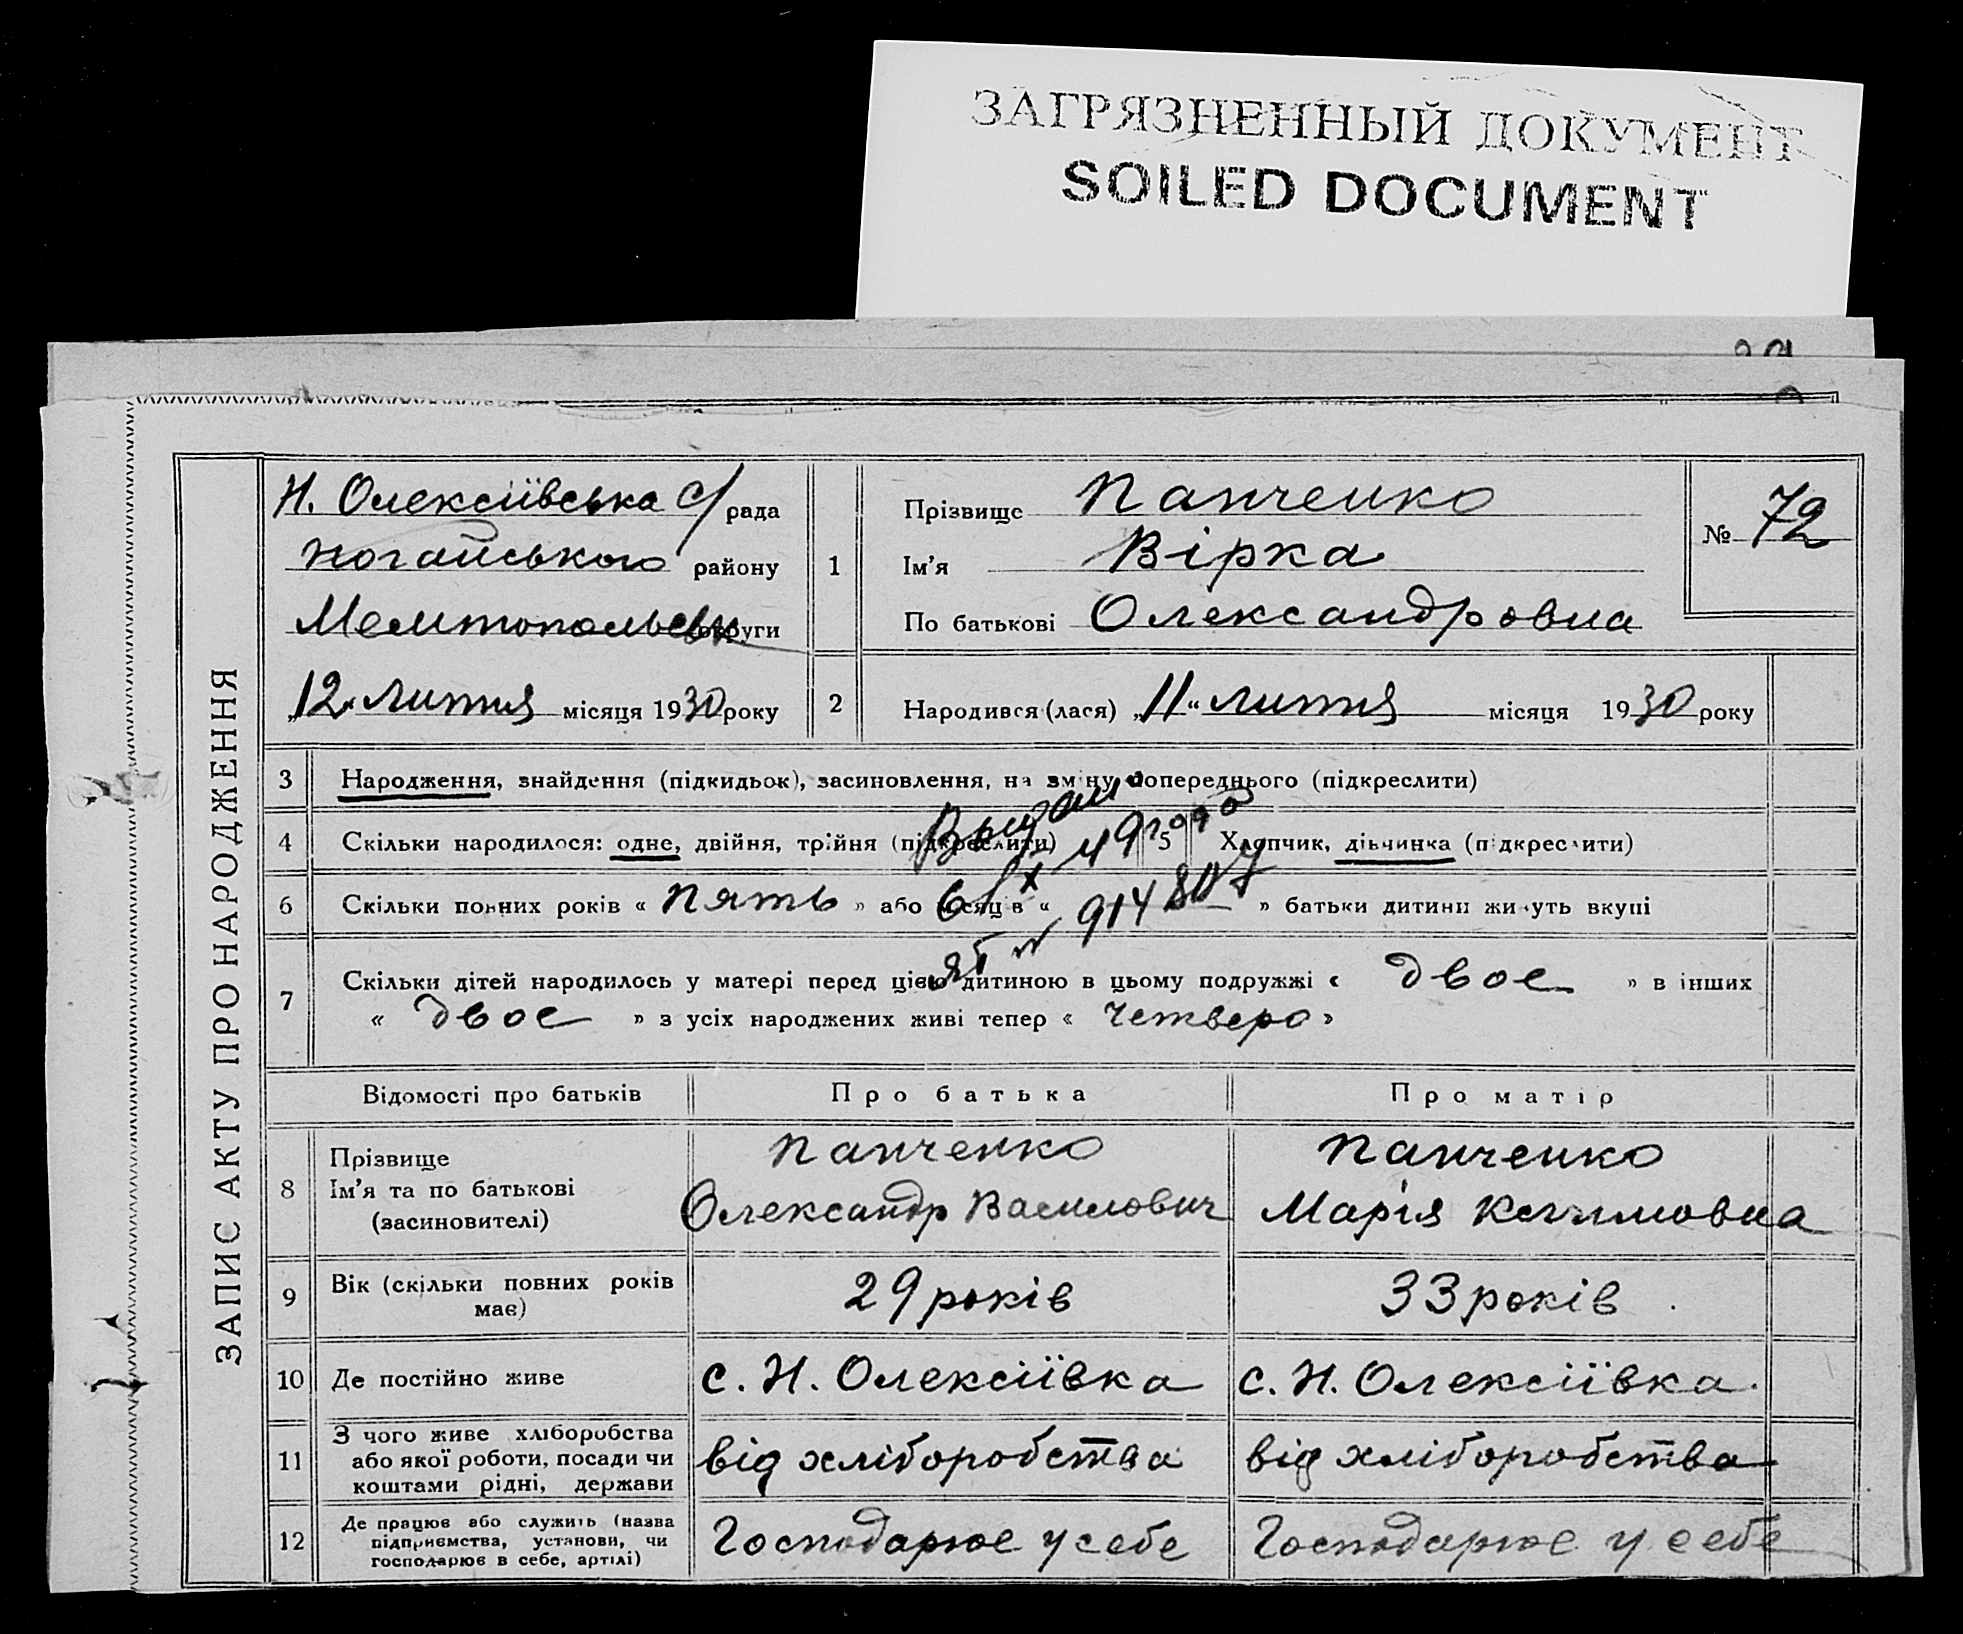 ЗАГРЯЗНЕННЫЙ ДОКУМЕНТ
SOILED DOCUMENT
ЗАПИС АКТУ ПРО НАРОДЖЕННЯ
Н. Олексіївська с/рада
Ногайського району
Мелитопольськ округи
„12“ лютня місяця 1930 року
1
Прізвище Панченко
Ім'я Вірка
По батькові Олександровна
№ 72
2
Народився (лася) „11“ лютня місяця 1930 року
3 Народження, знайдення (підкидьок), засиновлення, на зміну попереднього (підкреслити)
4 Скільки народилося: одне, двійня, трійня (підкреслити) 5 Хлопчик, дівчинка (підкреслити)
Выдан
6/X 49 года
ЯГ № 914807
6 Скільки повних років « пять » або місяців « » батьки дитини живуть вкупі
7 Скільки дітей народилось у матері перед цією дитиною в цьому подружжі « двое » в інших
« двое » з усіх народжених живі тепер « Четверо »
Відомості про батьків Про батька Про матір
8 Прізвище Панченко Панченко
Ім'я та по батькові Олександр Василович Марія Климовна
(засиновителі)
9 Вік (скільки повних років має) 29 років 33 років
10 Де постійно живе с. Н. Олексіївка с. Н. Олексіївка
11 З чого живе хліборобства або якої роботи, посади чи коштами рідні, держави від хліборобства від хліборобства
12 Де працює або служить (назва підприємства, установи, чи господарює в себе, артілі) Господарює у себе Господарює у себе